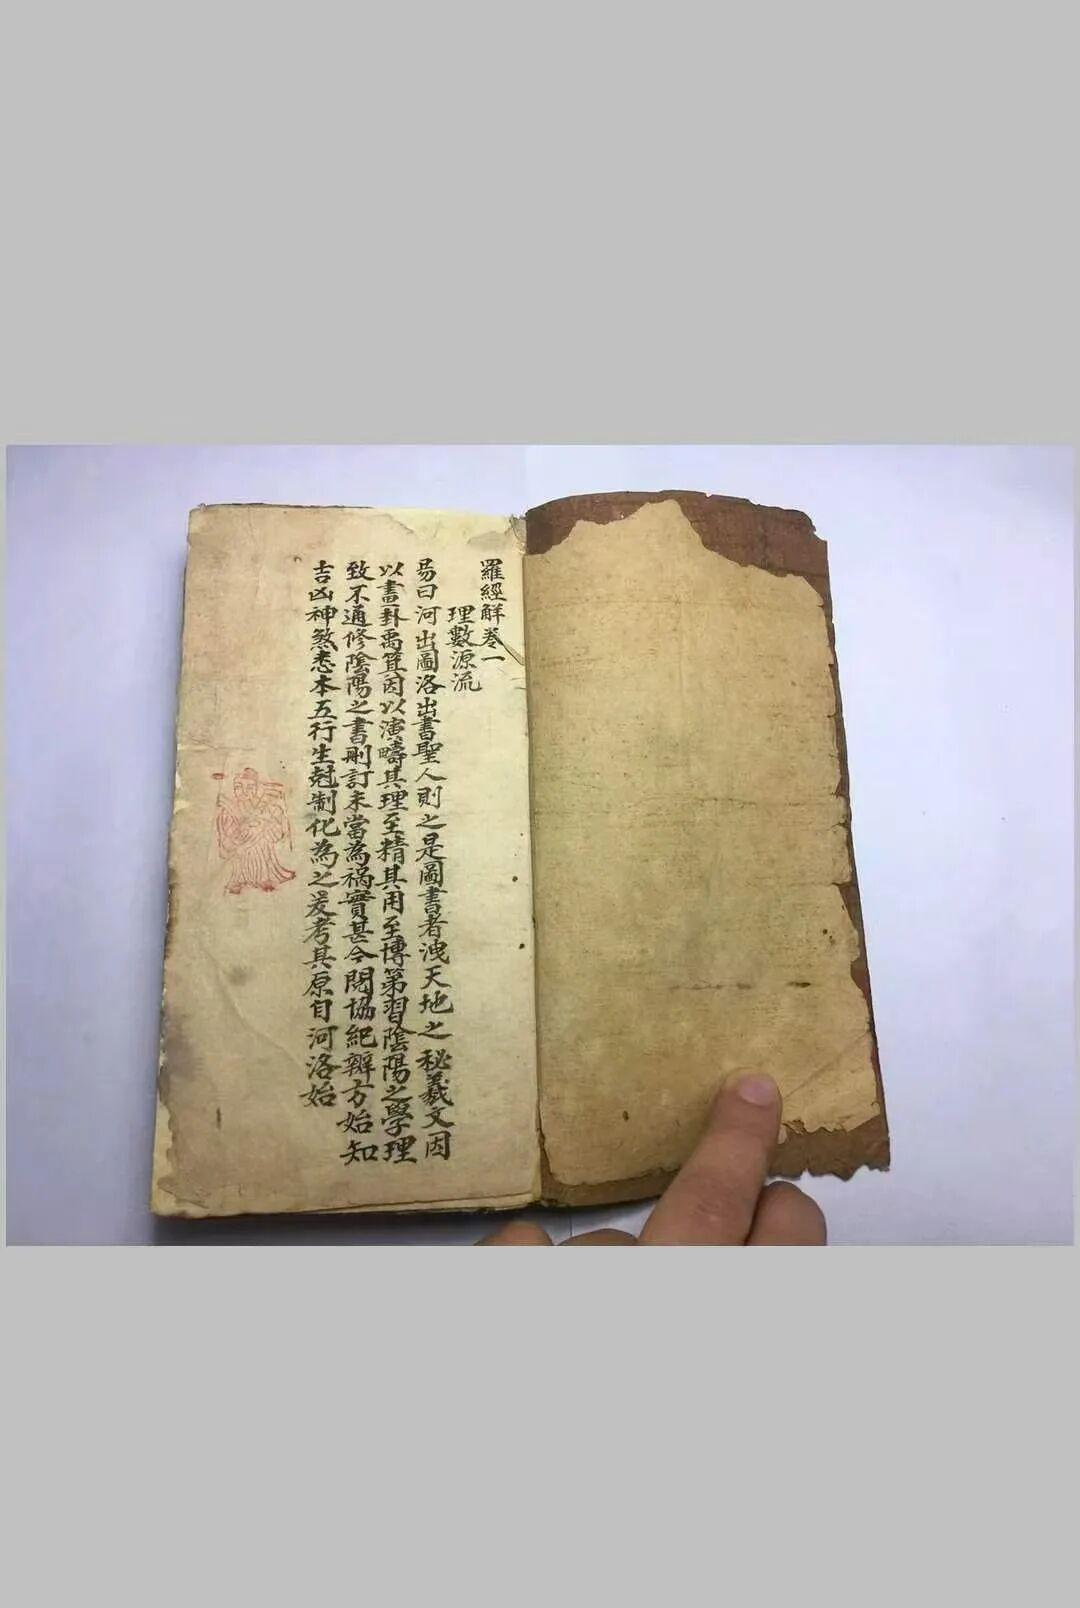 羅經解卷一
理數源流
易曰河出圖洛出書聖人則之是圖書者洩天地之秘羲文因
以畫卦禹箕因以演疇其理至精其用至博第習陰陽之學理
致不通修陰陽之書刪訂未當為禍實甚今閱協紀辨方始知
吉凶神煞悉本五行生尅制化為之爰考其原自河洛始